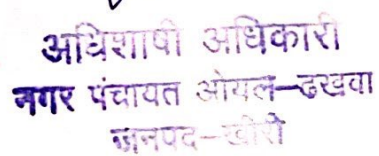 अधिशाषी अधिकारी
नगर पंचायत ओयल-ढखवा
जनपद-खीरी